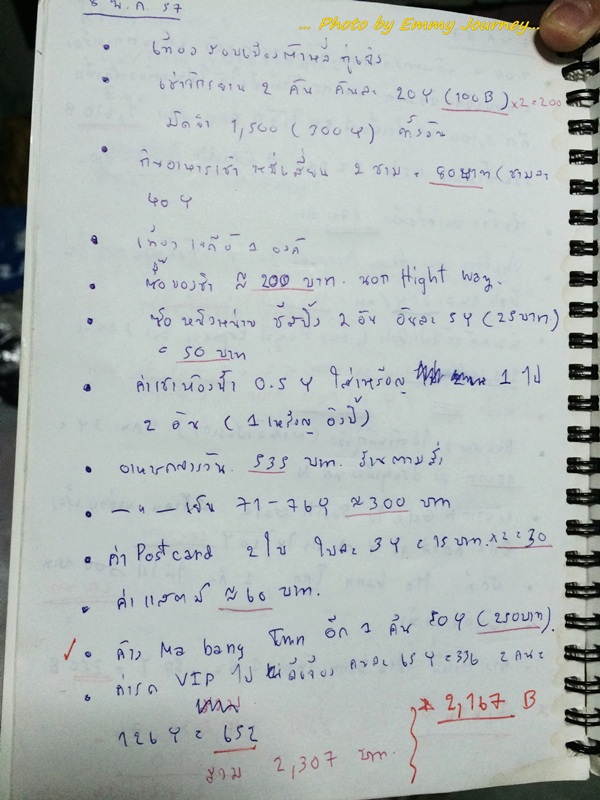 ... Photo by Emmy Journey...
8 พ.ก. 57
• เที่ยวรอบเมืองต้าหลี่ กู่เจิง
• เช่าจักรยาน 2 คัน คันละ 20 Y (100B) x2=200
มัดจำ 1,500 (300 Y) ทั้งวัน
• กินอาหารเช้า หมี่เสี้ยน 2 ชาม = 80 บาท (ชามละ
40 Y
• เที่ยว เจดีย์ 3 องค์
• ซื้อของชำ ≈ 200 บาท. นอก Hight way.
• ซื้อ ปิ้ง 2 อัน อันละ 5 Y (25บาท)
= 50 บาท
• ค่าเข้าห้องน้ำ 0.5 Y ใส่เหรียญ 1 ไป
2 อัน (1 เหรียญ
• อาหารกลางวัน. 535 บาท. ร้านตามสั่ง
• —"— เย็น 71-76 Y ≈ 300 บาท
• ค่า Postcard 2 ใบ ใบละ 3 Y = 15 บาท. x2=30
• ค่าแสตมป์ ≈ 60 บาท.
✓ • ค้าง Ma bang โทท อีก 1 คืน 50 Y (250บาท).
• ค่ารถ VIP ไป ลี่เจียง คนละ 65 Y = 336 2 คน =
126 Y = 652
* 2,167 B
รวม 2,307 บาท.